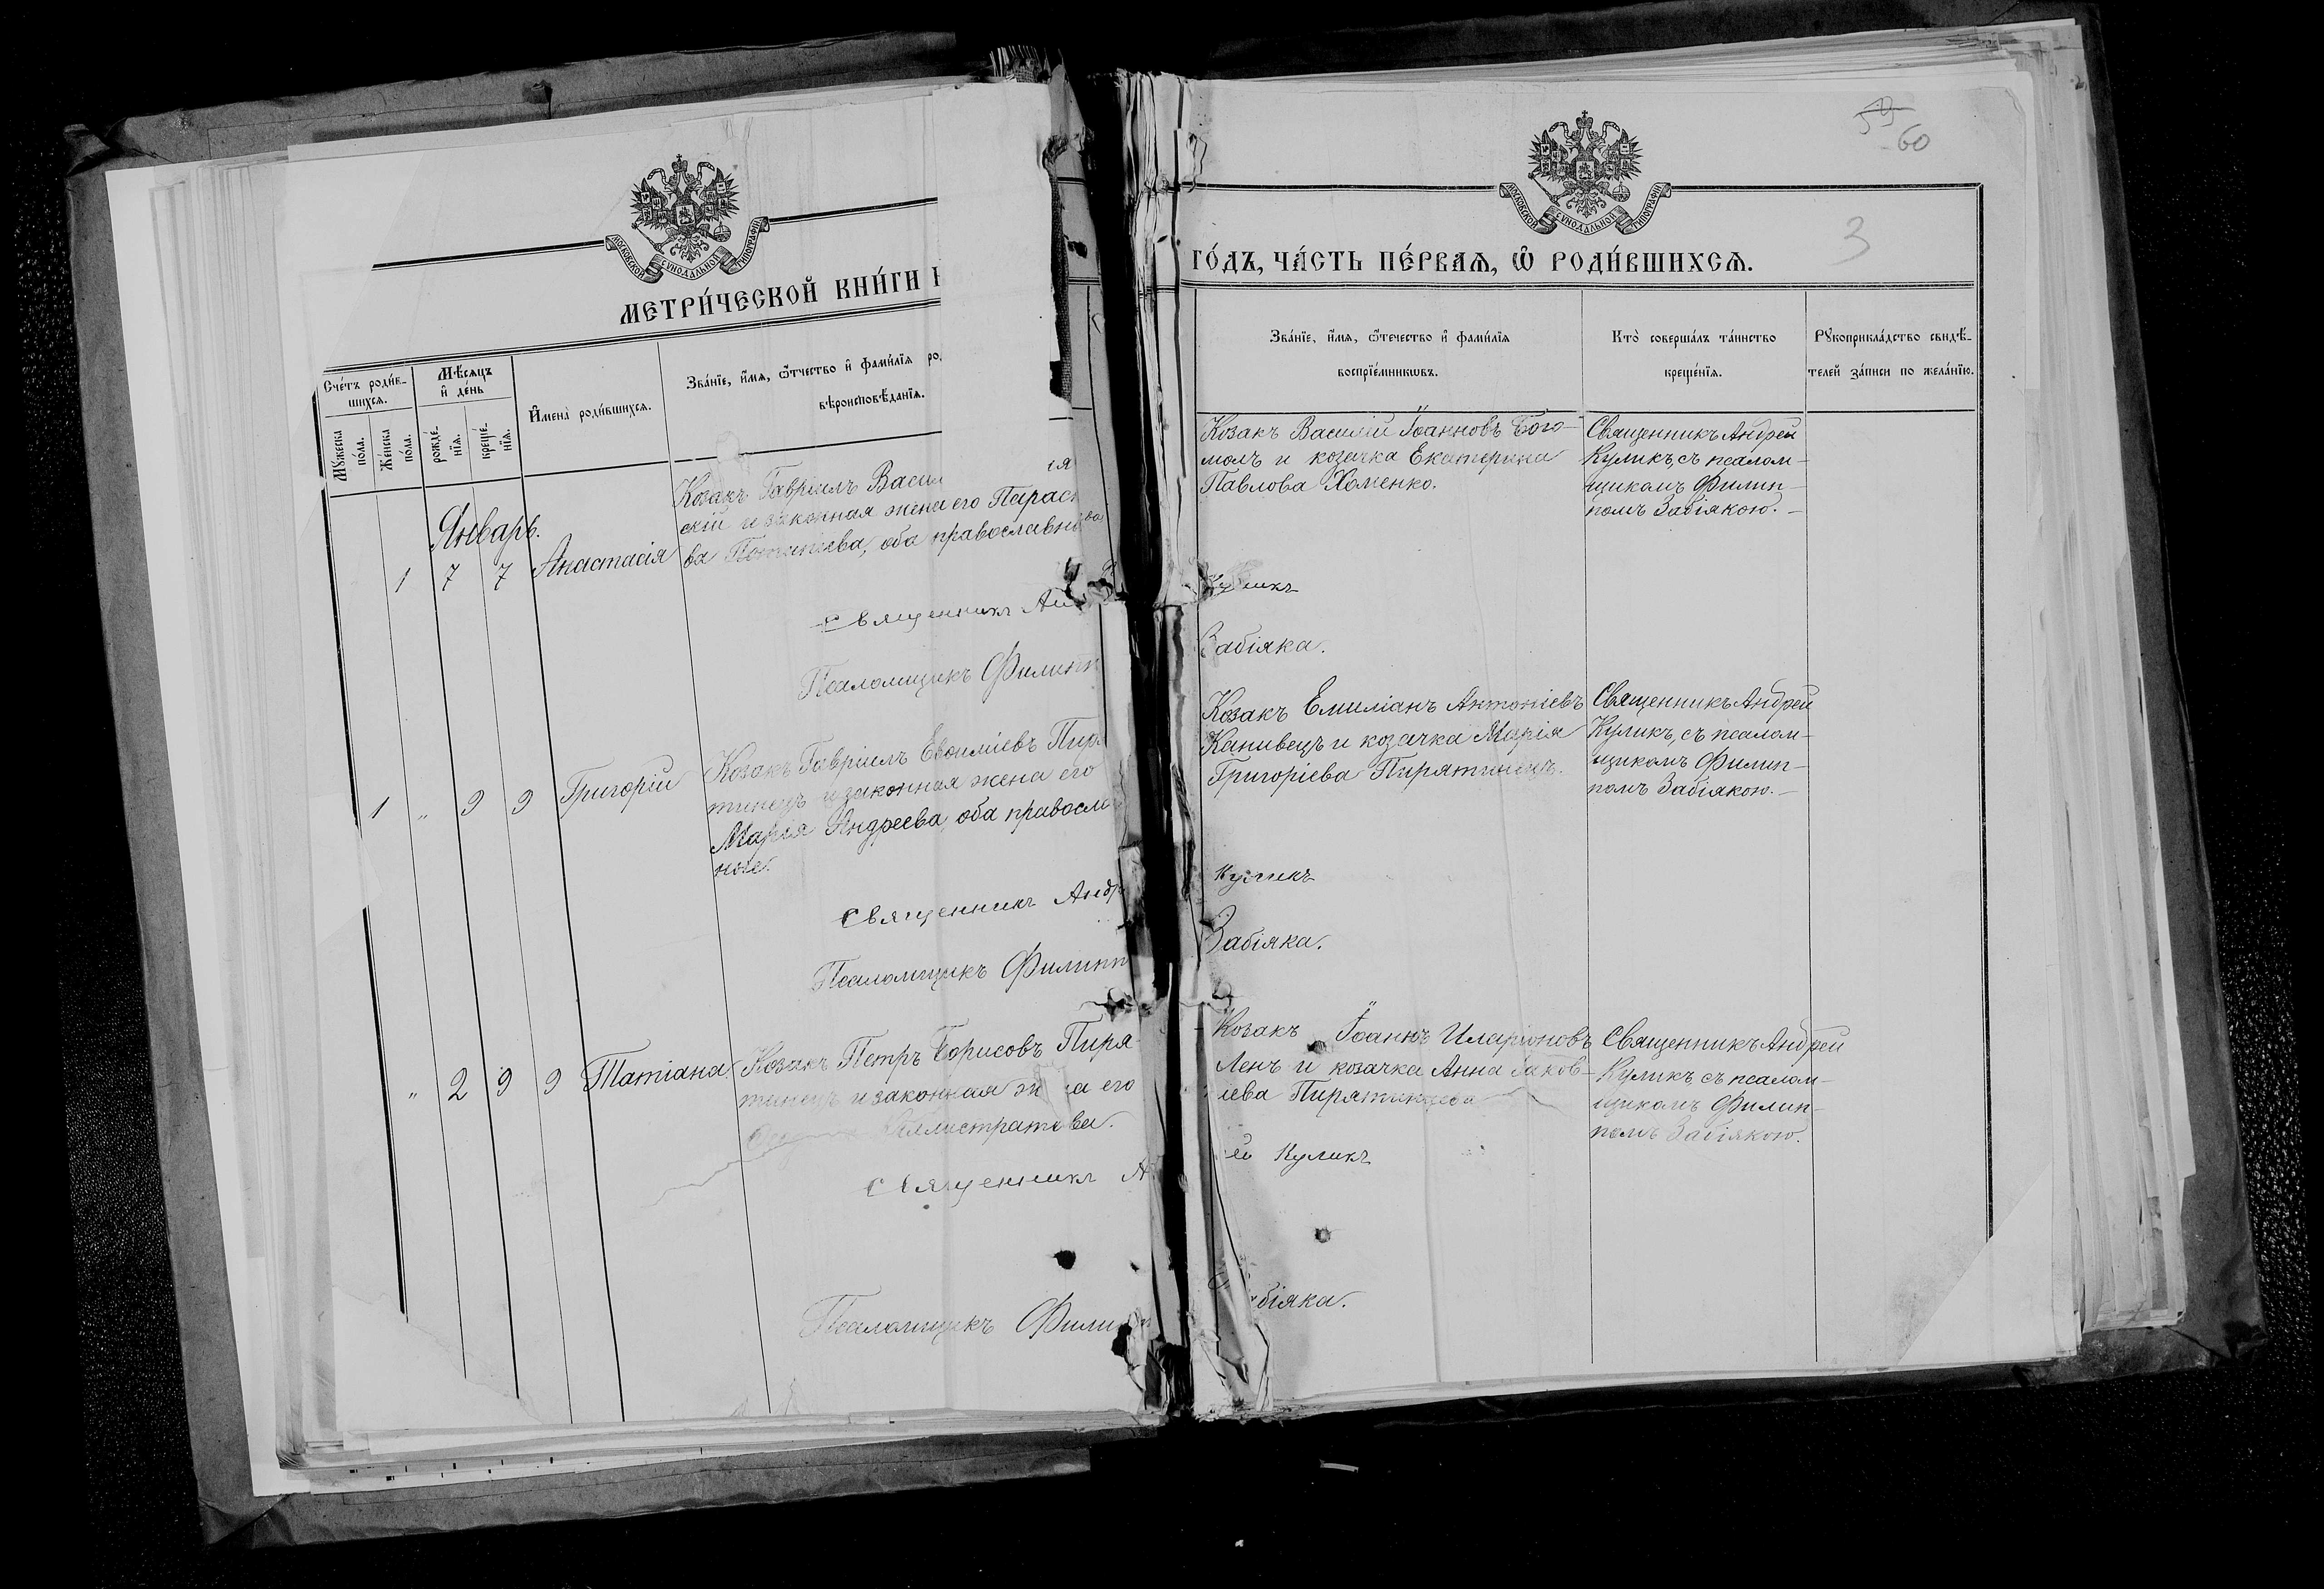 МОСКОВСКОЙ СѴНОДАЛЬНОЙ ТИПОГРАФІИ
МЕТРИ́ЧЕСКОЙ КНИ́ГИ
Сче́тъ роди́в-
шихсѧ.
Мѣ́сѧцъ
и҆ де́нь
Мꙋ́жеска
по́ла.
Же́нска
по́ла.
рожде́-
нїѧ.
креще́-
нїѧ.
И҆мена̀ роди́вшихсѧ.
Зва́нїе, и҆́мѧ, ѻ҆́тчество и҆ фами́лїѧ ро
вѣроисповѣ́данїѧ.
Январь.
1 7 7 Анастасія
Козакъ Гавріилъ Васи
скій и законная жена его Параск
ва Потапіева, оба православны
Священникъ Ан
Псаломщикъ Филипп
1 " 9 9 Григорій
Козакъ Гавріилъ Евѳиміевъ Пиря
тинецъ и законная жена его
Марія Андреева, оба правосла
ные.
Священникъ Андр
Псаломщикъ Филипп
" 2 9 9 Татіана
Козакъ Петръ Борисовъ Пиря-
тинецъ и законная ж на его
Каллистратова.
Священникъ А
Псаломщикъ Филип
59
60
3
МОСКОВСКОЙ СѴНОДАЛЬНОЙ ТИПОГРАФІИ
ГО́ДЪ, ЧА́СТЬ ПЕ́РВАѦ, Ѡ҆ РОДИ́ВШИХСѦ.
Зва́нїе, и҆́мѧ, ѻ҆те́чество и҆ фами́лїѧ
воспрїе́мникѡвъ.
Кто̀ соверша́лъ та́инство
креще́нїѧ.
Рꙋкоприкла́дство свидѣ́-
телей за́писи по жела́нїю.
Козакъ Василій Іоанновъ Бого-
молъ и козачка Екатерина
Павлова Хоменко.
Священникъ Андрей
Куликъ, съ псалом-
щикомъ Филип-
помъ Забіякою. -
Куликъ
Забіяка.
Козакъ Емиліанъ Антоніевъ
Канивецъ и козачка Марія
Григоріева Пирятинецъ.
Священникъ Андрей
Куликъ, съ псалом-
щикомъ Филип-
помъ Забіякою. -
Куликъ
Забіяка.
Козакъ Іоаннъ Иларіоновъ
Ленъ и козачка Анна Іаков-
лева Пирятинцева
Священникъ Андрей
Куликъ, съ псалом-
щикомъ Филип-
помъ Забіякою.
ей Куликъ
біяка.